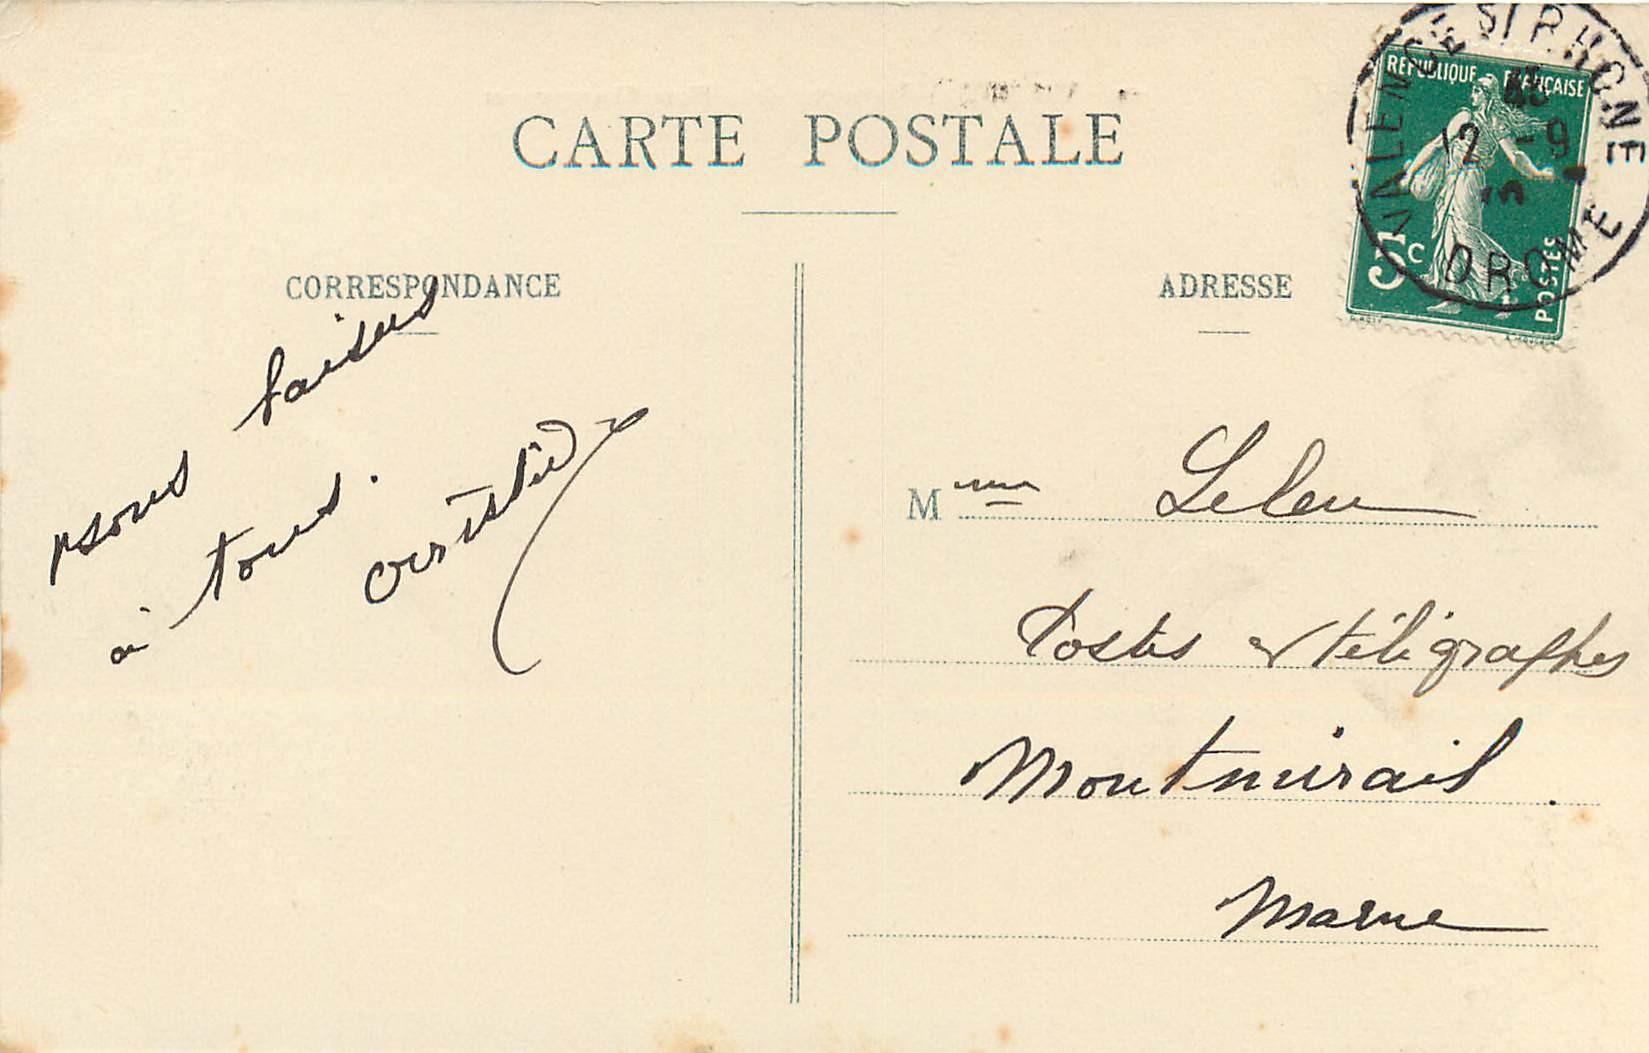 CARTE POSTALE
CORRESPONDANCE
bons baisers
à tous.
ADRESSE
RÉPUBLIQUE FRANÇAISE
5c
POSTES
VALENCE S/ RHONE
12 - 9
DROME
Mme Leleu
Postes et télégraphes
Montmirail.
Marne